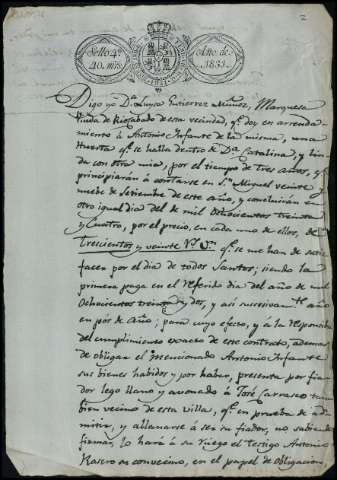 2
Sello 4º
40. mrs.
Año de
1831.
Digo yo Dª Luysa Gutierrez Muñoz, Marquesa
Viuda de Riosabado de esta vecindad, qe. doy en arrenda-
miento á Antonio Infante de la misma, una
Huerta qe. se halla dentro Dª Catalina, y lin-
da con otra mia, por el tiempo de tres años, qe.
principiarán á contarse en Sn. Miguel veinte y
nuebe de Setiembre de este año, y concluirán en
otro igual dia del de mil Ochocientos treinta
y Cuatro, por el precio, en cada uno de ellos, de
Trescientos y veinte Rs. Vn. qe. se me han de satis-
facer por el dia de todos Santos; siendo la
primera paga en el referido dia del año de mil
Ochocientos treinta y dos, y asi succesivamte. año
en pós de año; para cuyo efecto, y á la responsa
del cumplimiento exacto de este contrato, ademas
de obligar el mencionado Antonio Infante
sus bienes habidos y por haber, presenta por fia-
dor lego llano y avonado á José Carrasco tam-
bien vecino de esta villa, qe. en prueba de ad-
mitir, y allanarse á ser su fiador, no sabiendo
firmar, lo hará á su ruego el testigo Antonio
Rasero su convecino, en el papel de obligacion,